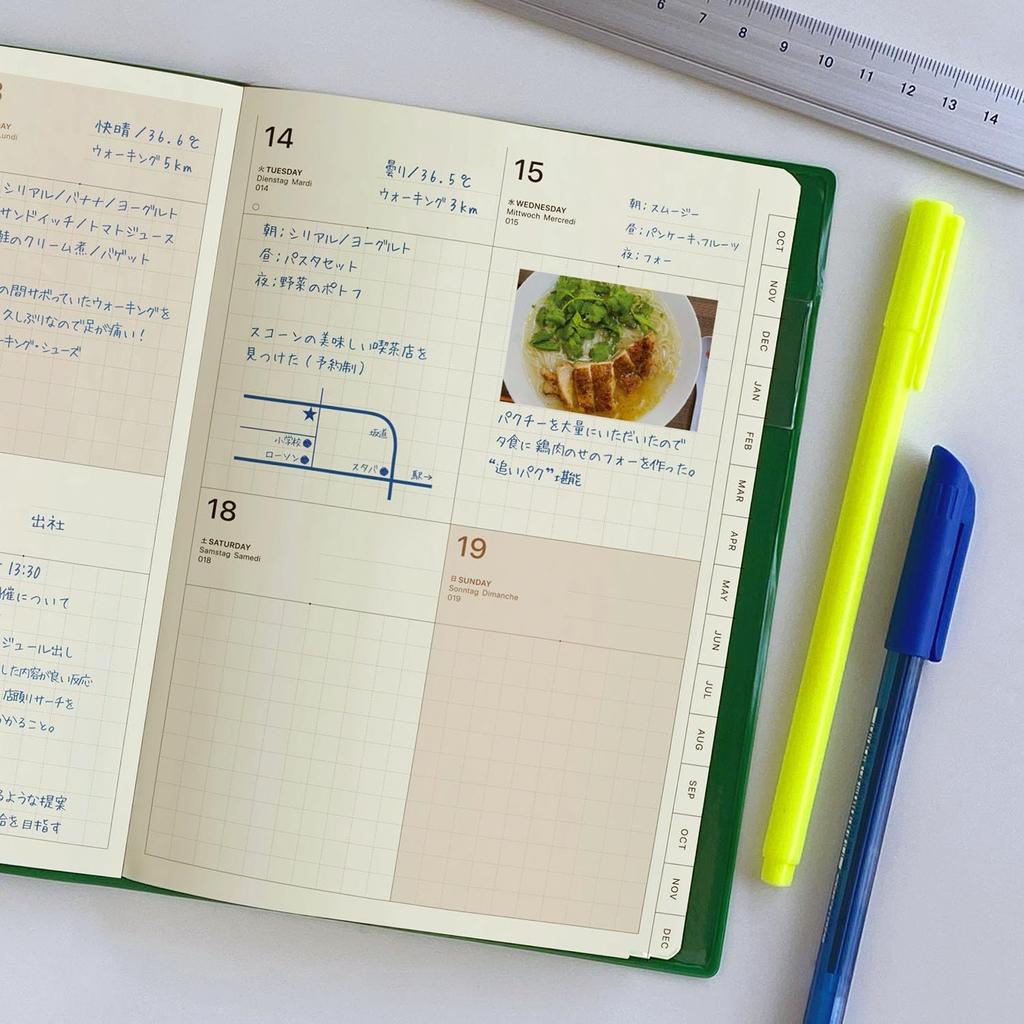 快晴/36.6℃
ウォーキング5km
シリアル/バナナ/ヨーグルト
サンドイッチ/トマトジュース
鮭のクリーム煮/バゲット
の間サボっていたウォーキングを
久しぶりなので足が痛い!
ーキング・シューズ
出社
13:30
催について
ジュール出し
した内容が良い反応
店頭リサーチを
かかること。
るような提案
を目指す
14
火 TUESDAY
Dienstag Mardi
014
曇り/36.5℃
ウォーキング3km
朝:シリアル/ヨーグルト
昼:パスタセット
夜:野菜のポトフ
スコーンの美味しい喫茶店を
見つけた(予約制)
★
小学校
ローソン
坂道
スタバ
駅→
15
水 WEDNESDAY
Mittwoch Mercredi
015
朝:スムージー
昼:パンケーキ、フルーツ
夜:フォー
パクチーを大量にいただいたので
夕食に鶏肉のせのフォーを作った。
“追いパク”堪能
18
土 SATURDAY
Samstag Samedi
018
19
日 SUNDAY
Sonntag Dimanche
019
OCT
NOV
DEC
JAN
FEB
MAR
APR
MAY
JUN
JUL
AUG
SEP
OCT
NOV
DEC
6 7 8 9 10 11 12 13 14